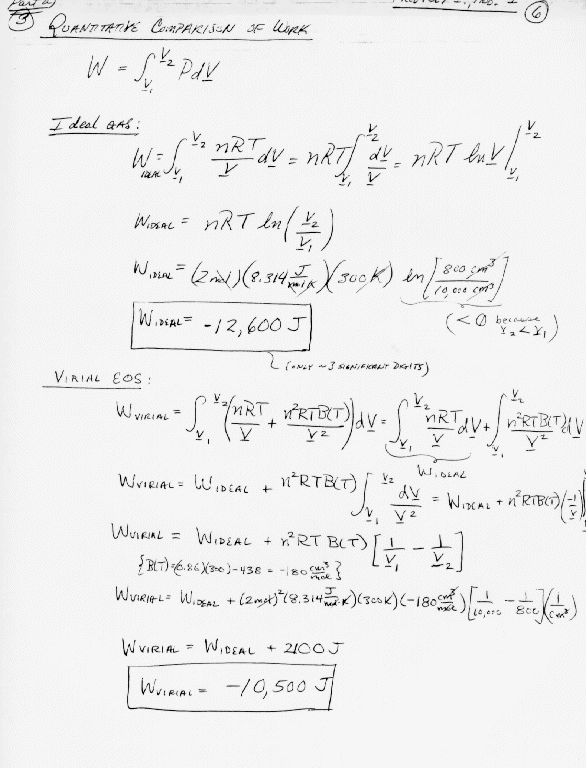 Part a)
6
3 QUANTITATIVE COMPARISON OF WORK
W = ∫_{V1}^{V2} P dV
Ideal GAS:
W_IDEAL = ∫_{V1}^{V2} nRT/V dV = nRT ∫_{V1}^{V2} dV/V = nRT ln V |_{V1}^{V2}
W_IDEAL = nRT ln(V2/V1)
W_IDEAL = (2 mol)(8.314 J/mol·K)(300K) ln[800 cm³/10,000 cm³]
(< 0 because V2 < V1)
W_IDEAL = -12,600 J
(ONLY ~3 SIGNIFICANT DIGITS)
VIRIAL EOS:
W_VIRIAL = ∫_{V1}^{V2} (nRT/V + n²RTB(T)/V²) dV = ∫_{V1}^{V2} nRT/V dV + ∫_{V1}^{V2} n²RTB(T)/V² dV
W_IDEAL
W_VIRIAL = W_IDEAL + n²RTB(T) ∫_{V1}^{V2} dV/V² = W_IDEAL + n²RTB(T)(-1/V)|
W_VIRIAL = W_IDEAL + n²RT B(T) [1/V1 - 1/V2]
{B(T)=(0.86)(300)-438 = -180 cm³/mole}
W_VIRIAL = W_IDEAL + (2mol)²(8.314 J/mol·K)(300K)(-180 cm³/mole)[1/10,000 - 1/800](1/cm³)
W_VIRIAL = W_IDEAL + 2100 J
W_VIRIAL = -10,500 J